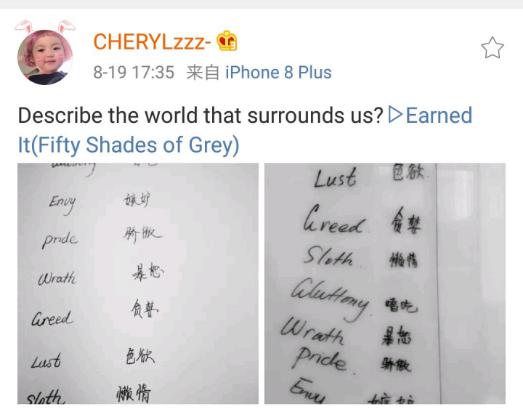 CHERYLzzz-
8-19 17:35 来自 iPhone 8 Plus
Describe the world that surrounds us? ▷Earned
It(Fifty Shades of Grey)
Envy 嫉妒
pride 骄傲
Wrath 暴怒
Greed 贪婪
Lust 色欲
Sloth 懒惰
Lust 色欲
Greed 贪婪
Sloth 懒惰
Gluttony 嗜吃
Wrath 暴怒
Pride 骄傲
Envy 嫉妒